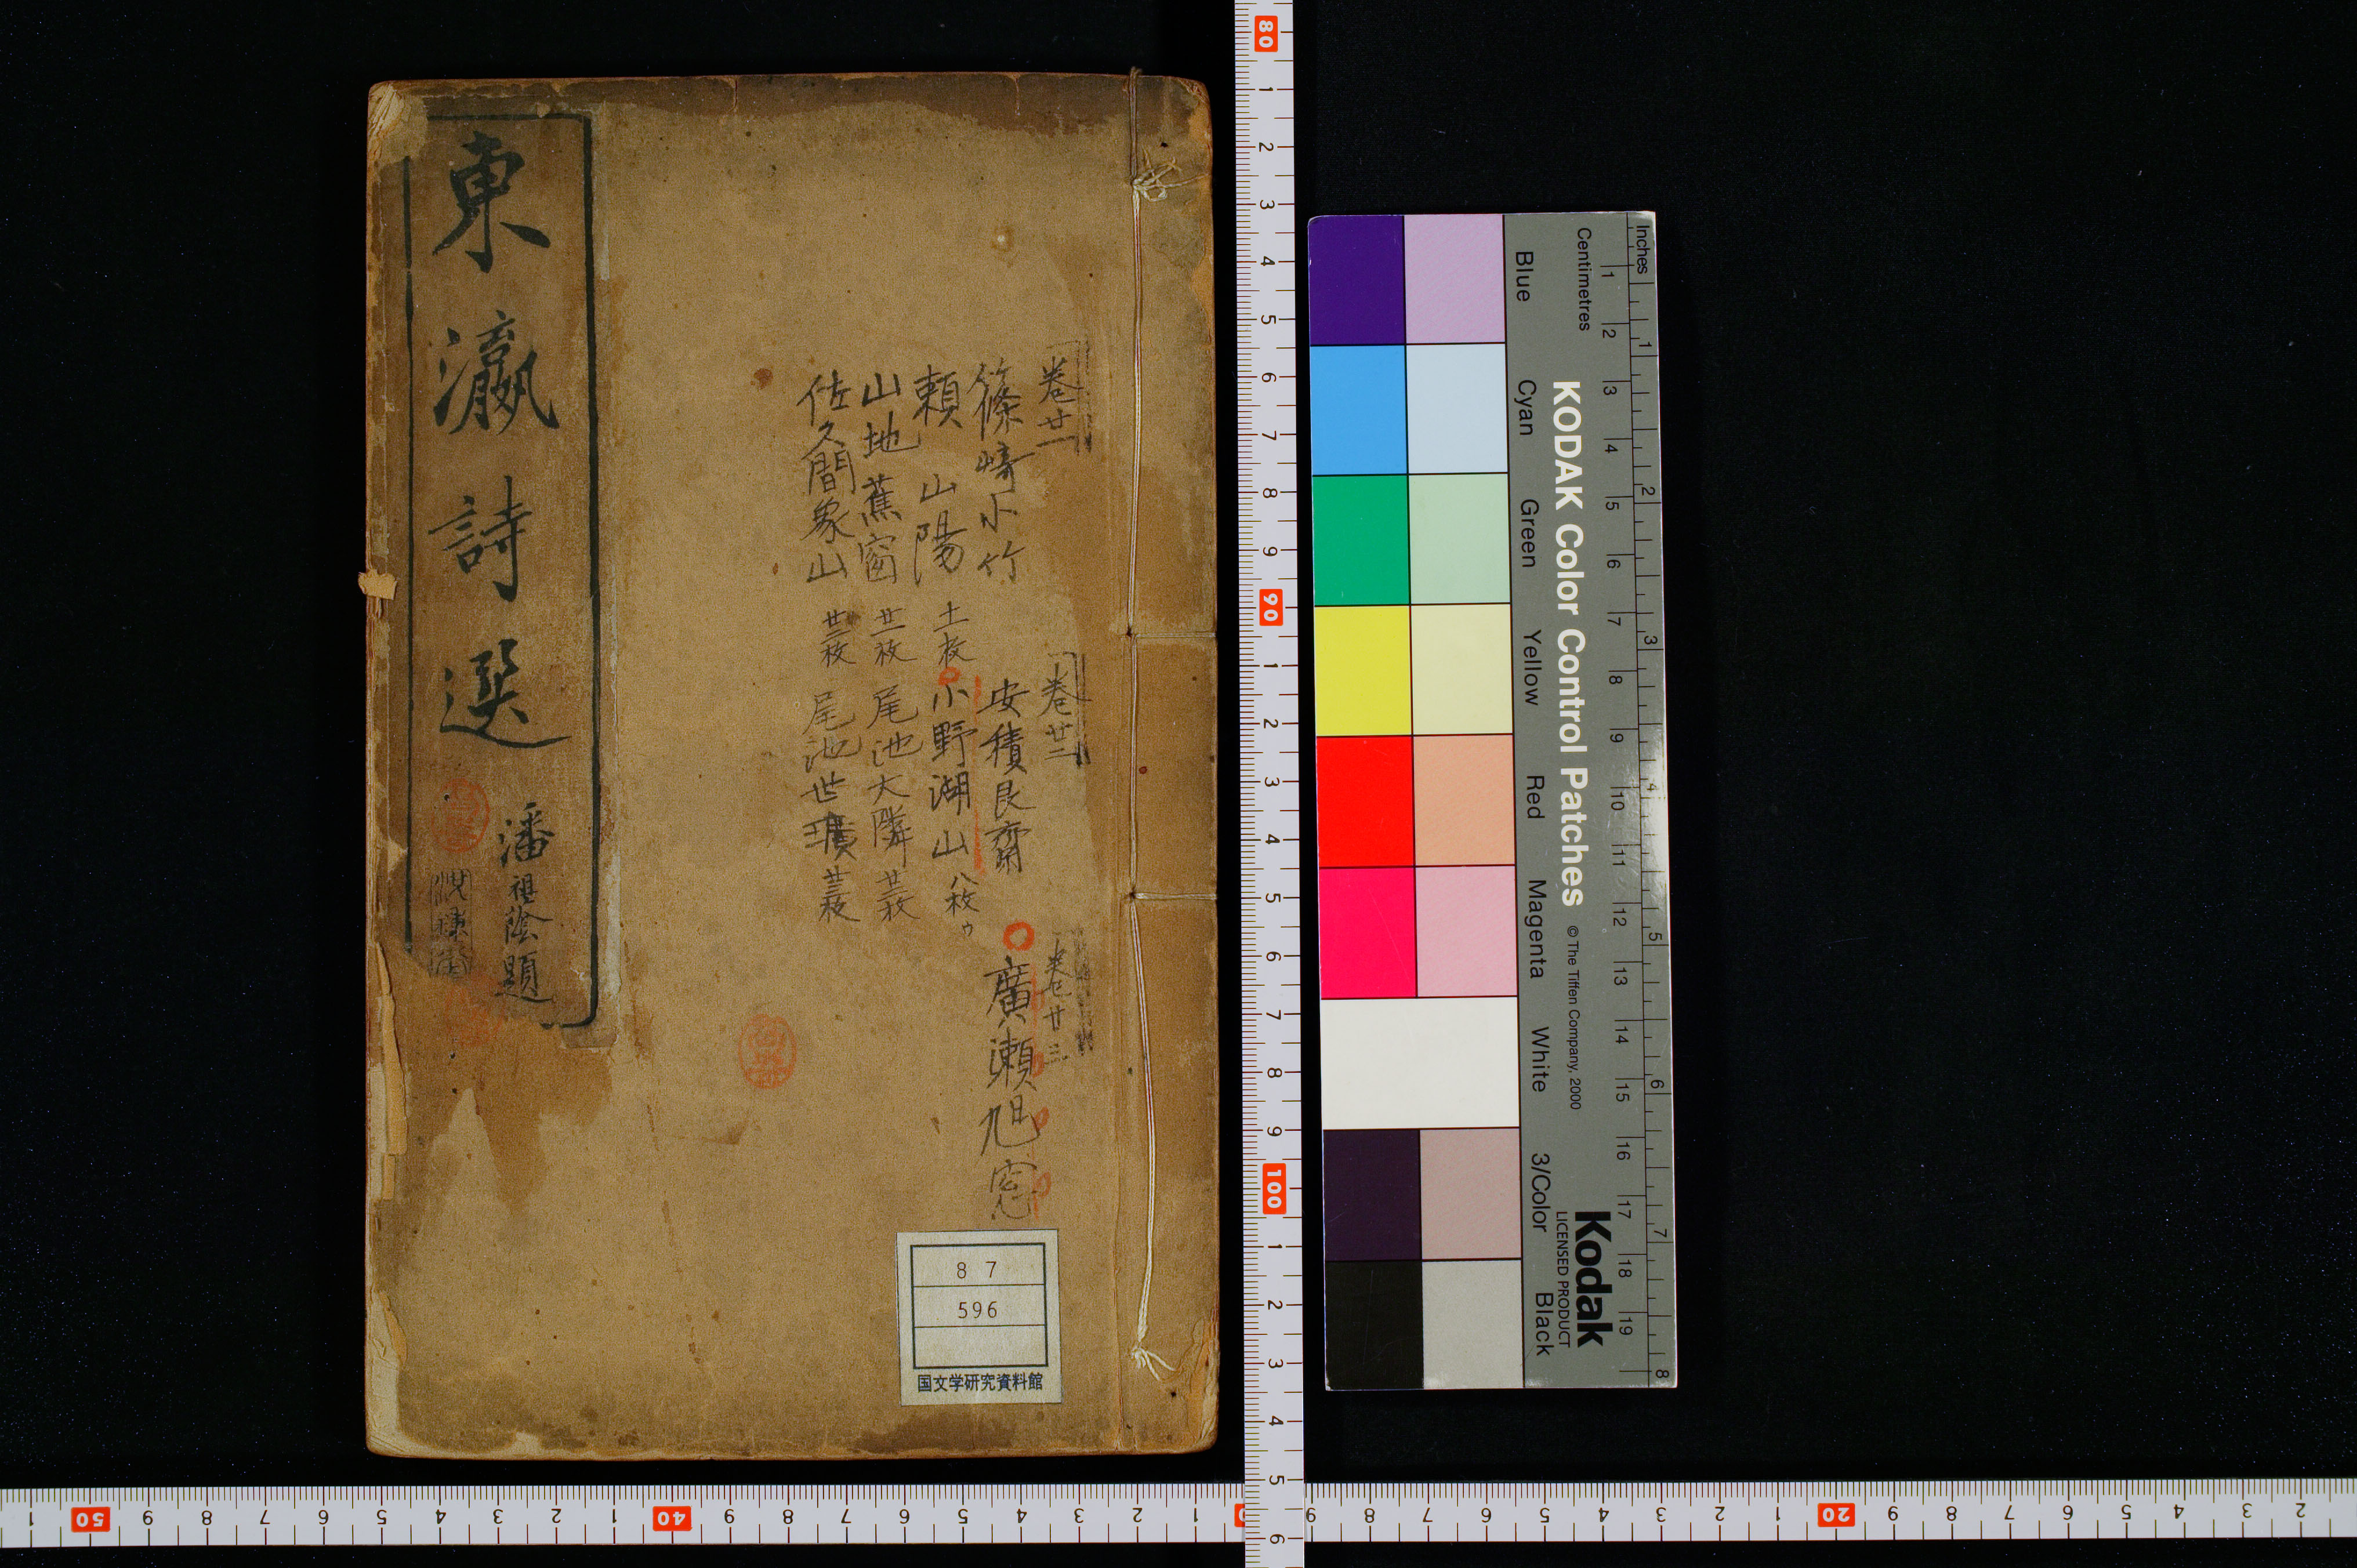 東瀛詩選
潘祖蔭題
卷廿一
篠崎小竹
頼 山陽 十一枚
山地蕉窗 廿一枚
佐久間象山 廿三枚
卷廿二
安積艮齋
小野湖山 八枚ゥ
尾池大隣
尾池世璜
卷廿三
廣瀬旭窓
87
596
国文学研究資料館
KODAK Color Control Patches
© The Tiffen Company, 2000
Kodak
LICENSED PRODUCT
Inches
Centimetres
Blue
Cyan
Green
Yellow
Red
Magenta
White
3/Color
Black